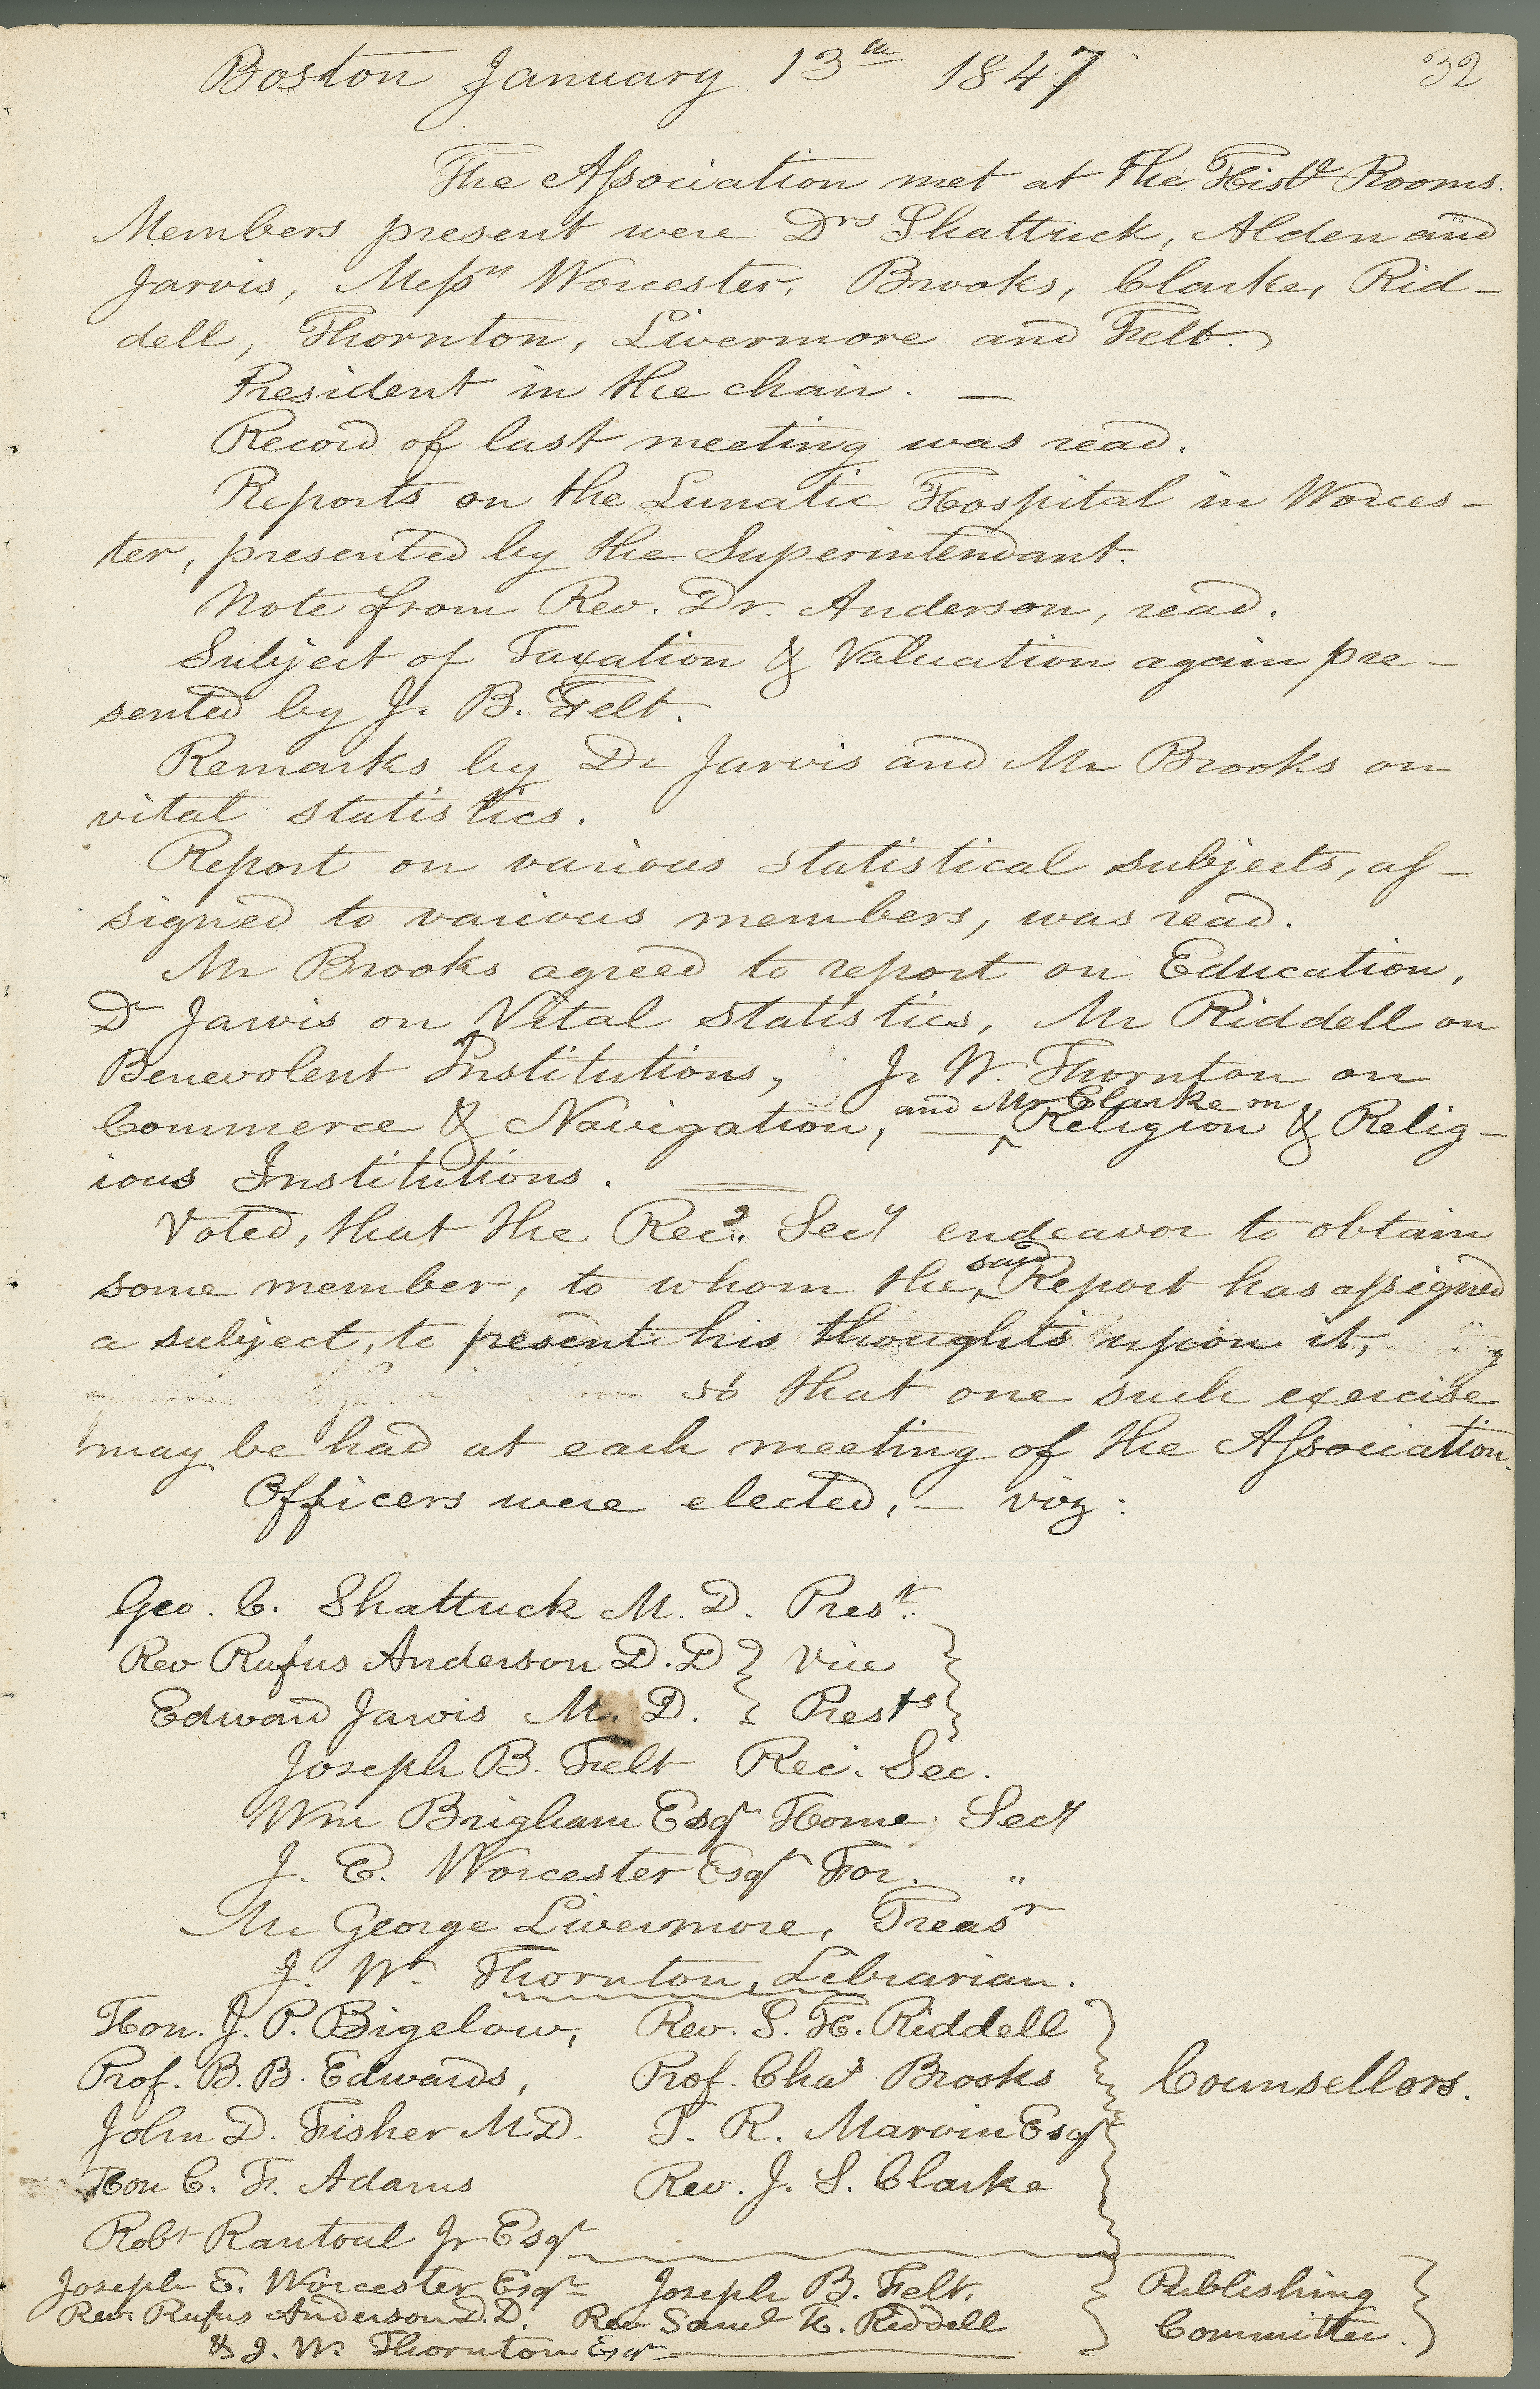 Boston January 13th 1847 32
The Association met at the Hist' Rooms.
Members present were Drs Shattuck, Alden and
Jarvis, Messrs Worcester, Brooks, Clarke, Rid-
dell, Thornton, Livermore and Felt.
President in the chair. —
Record of last meeting was read.
Reports on the Lunatic Hospital in Worces-
ter, presented by the Superintendant.
Note from Rev. Dr. Anderson, read.
Subject of Taxation & Valuation again pre-
sented by J. B. Felt.
Remarks by Dr Jarvis and Mr Brooks on
vital statistics.
Report on various statistical subjects, as-
signed to various members, was read.
Mr Brooks agreed to report on Education,
Dr Jarvis on Vital Statistics, Mr Riddell on
Benevolent Institutions, J. W. Thornton on
Commerce & Navigation, — and Mr Clarke on Religion & Relig-
ious Institutions.
Voted, that the Recg. Secy endeavor to obtain
some member, to whom the said Report has assigned
a subject, to present his thoughts upon it,
so that one such exercise
may be had at each meeting of the Association.
Officers were elected, — viz:
Geo. C. Shattuck M. D. Prest.
Rev Rufus Anderson D. D } Vice
Edward Jarvis M. D. } Prests
Joseph B. Felt Rec. Sec.
Wm Brigham Esqr Home Secy
J. E. Worcester Esqr For. "
Mr George Livermore, Treasr
J. W. Thornton, Librarian.
Hon. J. P. Bigelow, Rev. S. H. Riddell
Prof. B. B. Edwards, Prof. Chas Brooks } Counsellors.
John D. Fisher M.D. T. R. Marvin Esqr
Hon C. F. Adams Rev. J. S. Clarke
Robt Rantoul Jr Esqr
Joseph E. Worcester Esqr Joseph B. Felt, } Publishing
Rev. Rufus Anderson D.D. Rev Saml H. Riddell } Committee.
& J. W. Thornton Esqr